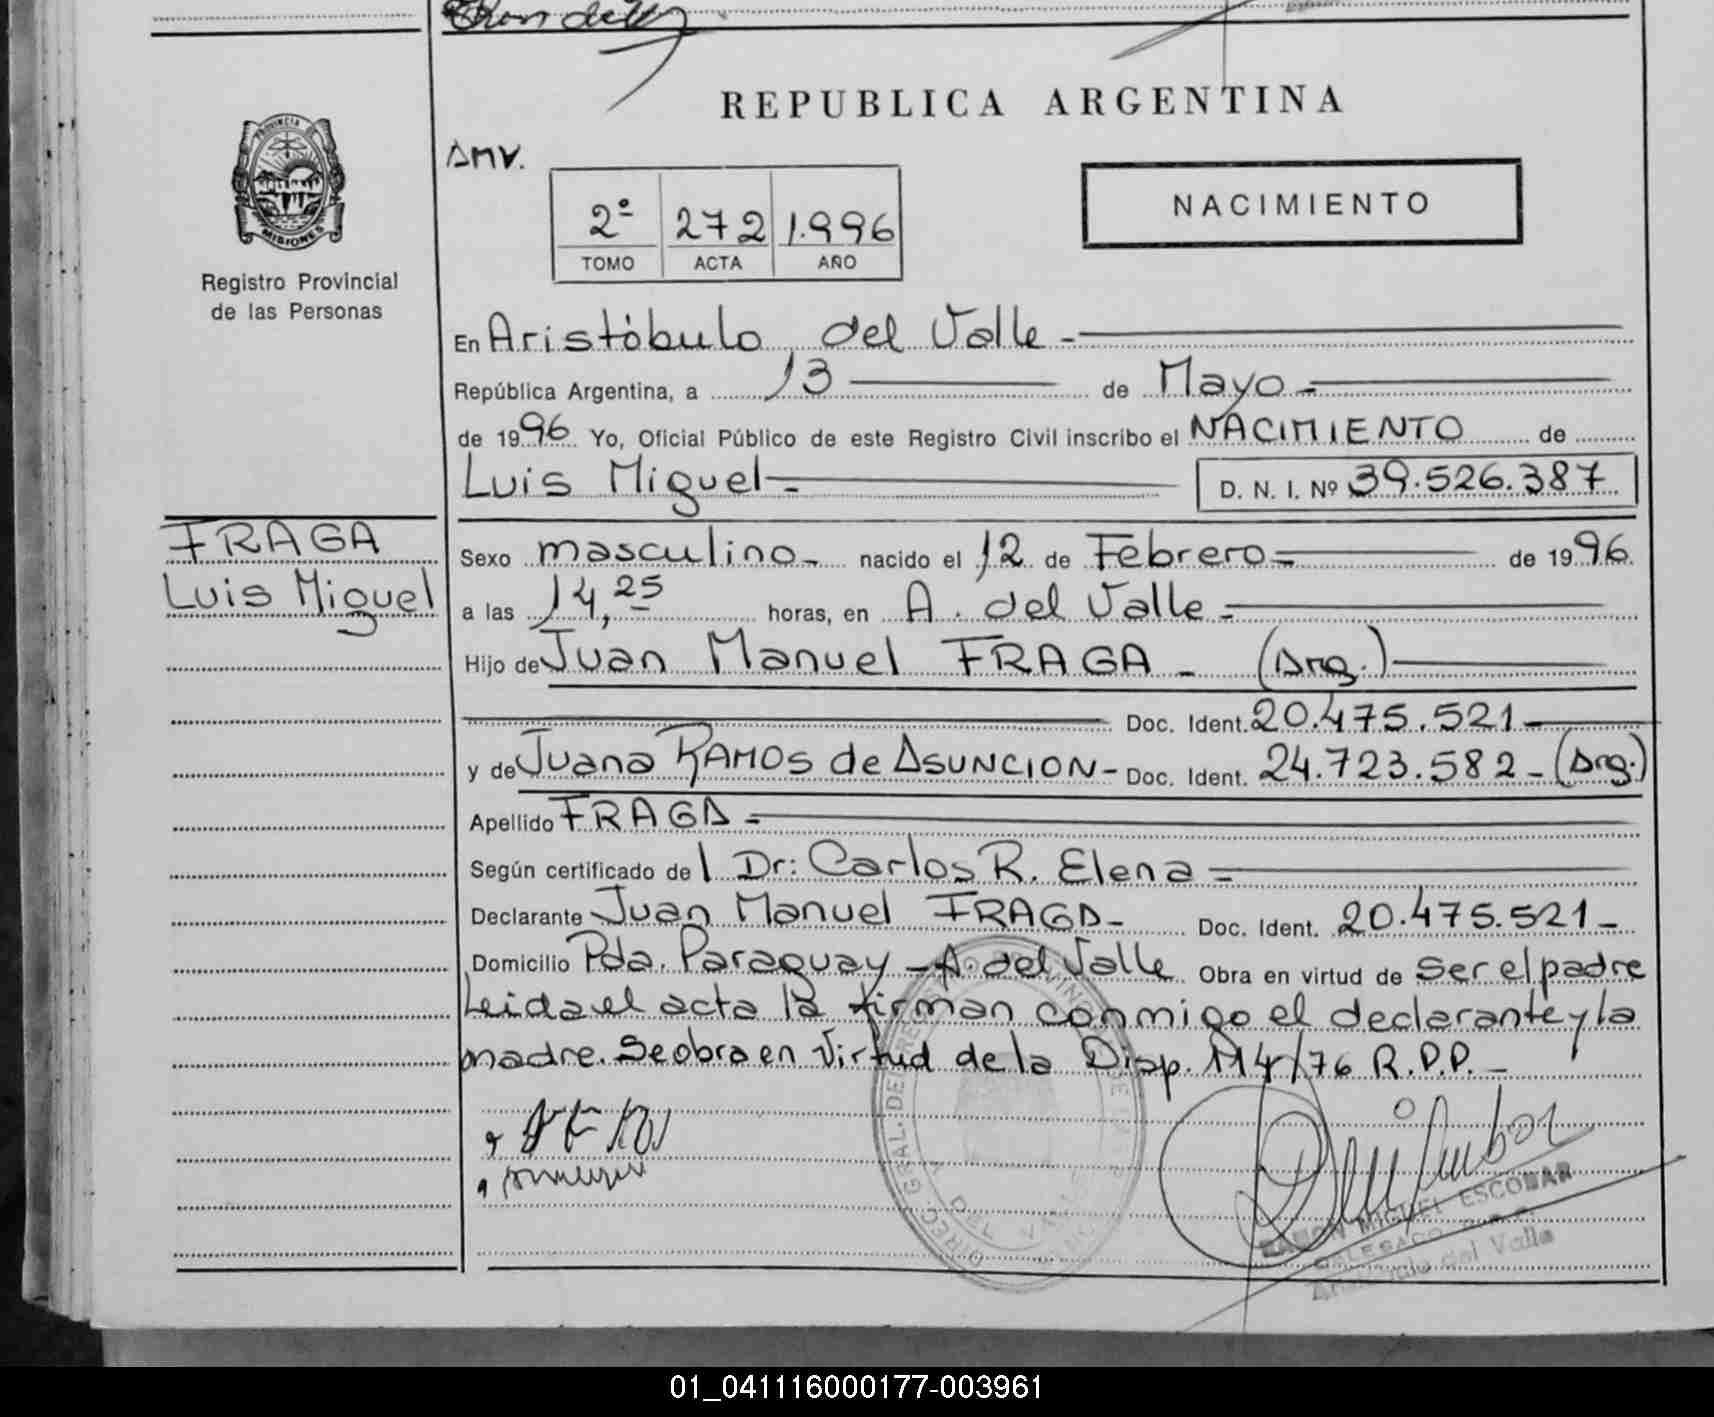 REPUBLICA ARGENTINA
AMV.
NACIMIENTO
2º 272 1.996
TOMO ACTA AÑO
PROVINCIA DE
MISIONES
Registro Provincial
de las Personas
En Aristóbulo del Valle -
República Argentina, a 13 de Mayo -
de 1996 Yo, Oficial Público de este Registro Civil inscribo el NACIMIENTO de
Luis Miguel - D. N. I. Nº 39.526.387
FRAGA
Luis Miguel
Sexo masculino - nacido el 12 de Febrero = de 1996.
a las 14,25 horas, en A. del Valle -
Hijo de Juan Manuel FRAGA - (Arg.)
Doc. Ident. 20.475.521 -
y de Juana RAMOS de ASUNCION - Doc. Ident. 24.723.582 - (Arg.)
Apellido FRAGA =
Según certificado de l Dr: Carlos R. Elena =
Declarante Juan Manuel FRAGA - Doc. Ident. 20.475.521 -
Domicilio Pda. Paraguay - A. del Valle Obra en virtud de ser el padre
Leida el acta la firman conmigo el declarante y la
madre. Se obra en virtud de la Disp. 114/76 R.P.P. -
RAMON MIGUEL ESCOBAR
DELEGADO
Aristóbulo del Valle
01_041116000177-003961